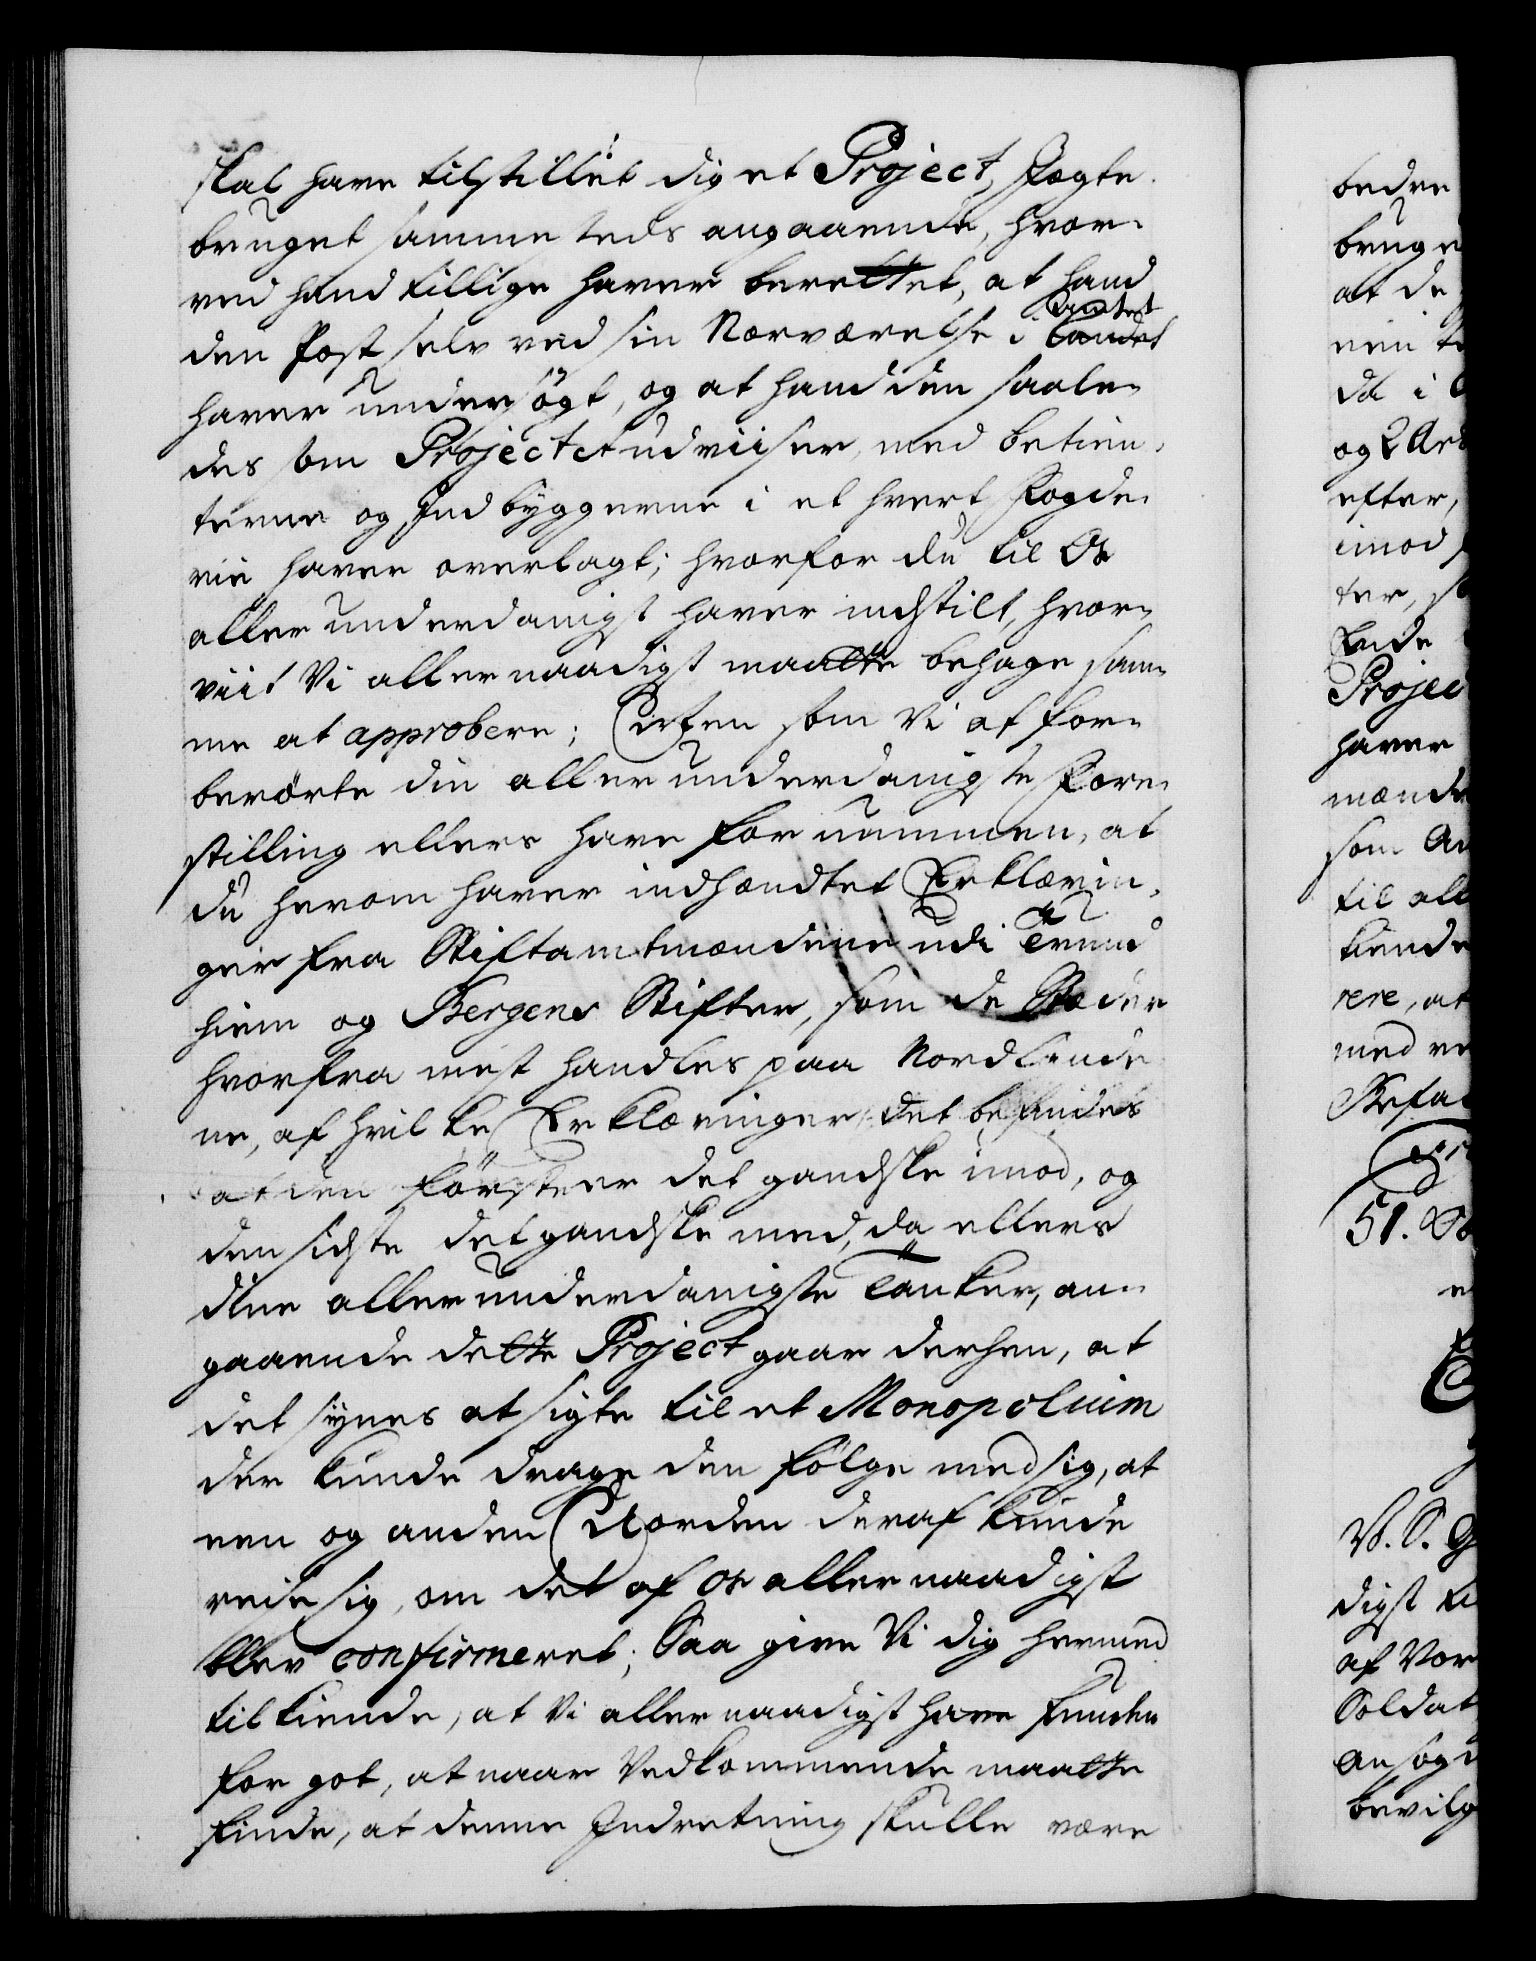 skal have tilstillet dig et Project, Jægte
bruget sammesteds angaaende, hvor-
ved hand tillige haver berettet, at hand
den Post selv ved sin Nærværelse i Landet Amtet
haver undersögt, og at hand den saale-
des som Projectet udviiser, med betien-
terne og Indbyggerne i et hvert Fogde-
rie haver overlagt; hvorfor du til Os
allerunderdanigst haver indstilt, hvor-
viit Vi allernaadigst maatte behage sam-
me at approbere; Efter som Vi af for-
berörte din allerunderdanigste Fore-
stilling ellers have fornummen, at
du herom haver indhændtet Erklærin-
ger fra Stiftamtmændene udi Trund
hiem og Bergens Stifter, som de Stæder
hvorfra mest handles paa Nordlande
ne, af hvilke Erklæringer det befindes
at den förster det gandske imod, og
den sidste det gandske med, da ellers
dine allerunderdanigste Tanker, an-
gaaende dette Project gaar derhen, at
det synes at sigte til et Monopolium
der kunde drage den fölge med sig, at
een og anden Uorden deraf kunde
reise sig, om det af Os allernaadigst
blev confirmeret; Saa give Vi dig hermed
tilkiende, at Vi allernaadigst have funden
for got, at naar Vedkommende maatte
finde, at denne Indretning skulle være
bedre
bruge
at de
da i
og 2
efter,
imod
ter,
Ende
Projec
haver
mænde
som
til all
kiende
rere, at
med
Befal
51.
digst
af Vor
Soldat
ansög
bevilg